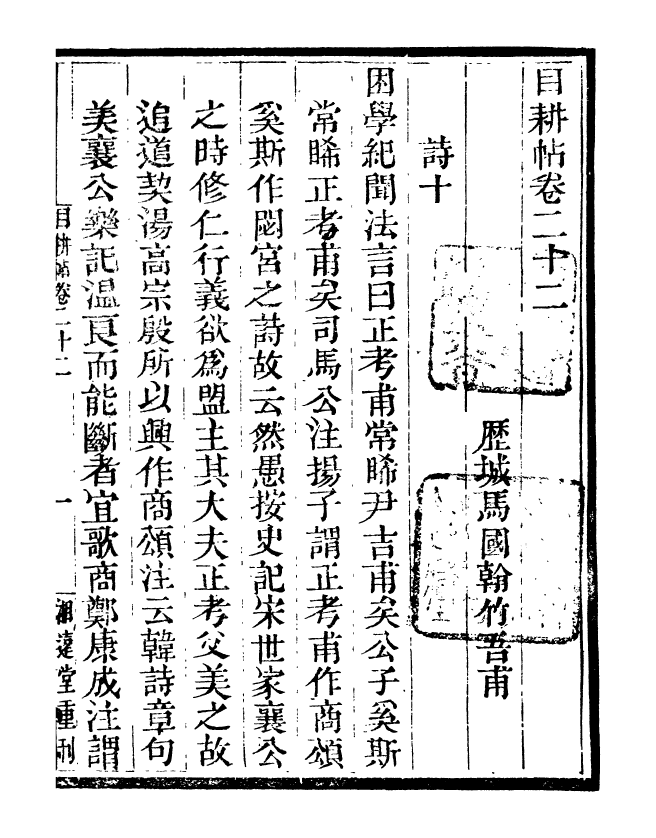 目耕帖卷二十二
歴城馬國翰竹吾甫
詩十
困學紀聞法言曰正考甫常睎尹吉甫矣公子奚斯
常睎正考甫矣司馬公注揚子謂正考甫作商頌
奚斯作閟宮之詩故云然愚按史記宋世家襄公
之時修仁行義欲爲盟主其大夫正考父美之故
追道契湯高宗殷所以興作商頌注云韓詩章句
美襄公樂記溫良而能斷者宜歌商鄭康成注謂
目耕帖卷二十二 一 湘遠堂重刋